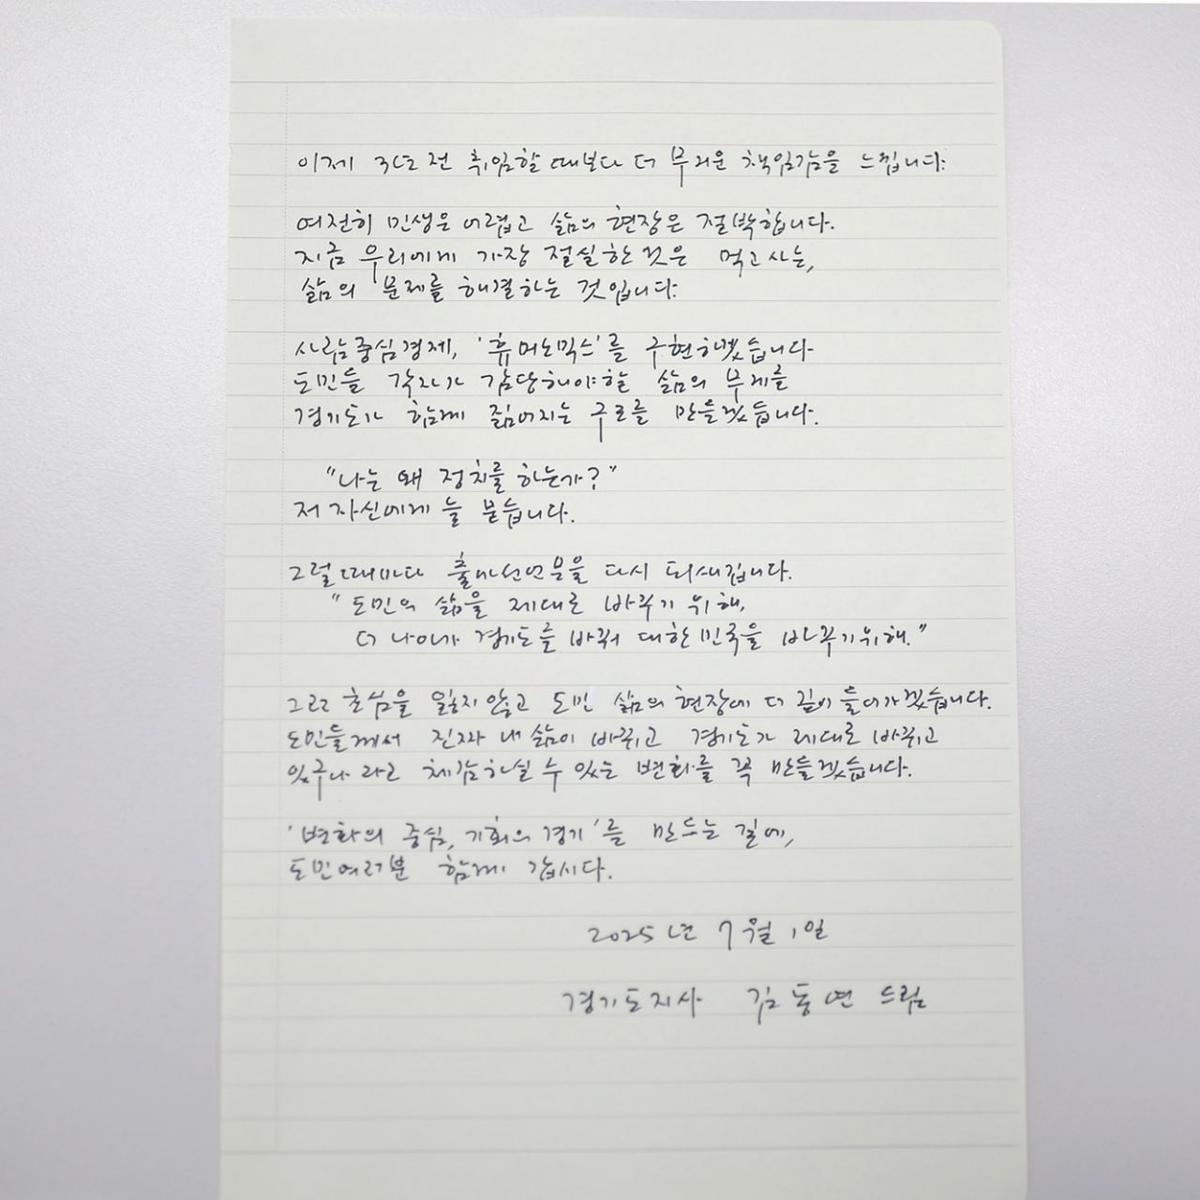 이제 3년 전 취임할 때보다 더 무거운 책임감을 느낍니다.
여전히 민생은 어렵고 삶의 현장은 절박합니다.
지금 우리에게 가장 절실한 것은 먹고 사는,
삶의 문제를 해결하는 것입니다.
사람중심경제, '휴머노믹스'를 구현하겠습니다
도민들 각자가 감당해야할 삶의 무게를
경기도가 함께 짊어지는 구조를 만들겠습니다.
"나는 왜 정치를 하는가?"
저 자신에게 늘 묻습니다.
그럴 때마다 출마선언문을 다시 되새깁니다.
"도민의 삶을 제대로 바꾸기 위해,
더 나아가 경기도를 바꿔 대한민국을 바꾸기 위해."
그 초심을 잃지 않고 도민 삶의 현장에 더 깊이 들어가겠습니다.
도민들께서 진짜 내 삶이 바뀌고 경기도가 제대로 바뀌고
있구나 라고 체감하실 수 있는 변화를 꼭 만들겠습니다.
'변화의 중심, 기회의 경기'를 만드는 길에,
도민여러분 함께 갑시다.
2025년 7월 1일
경기도지사 김동연 드림